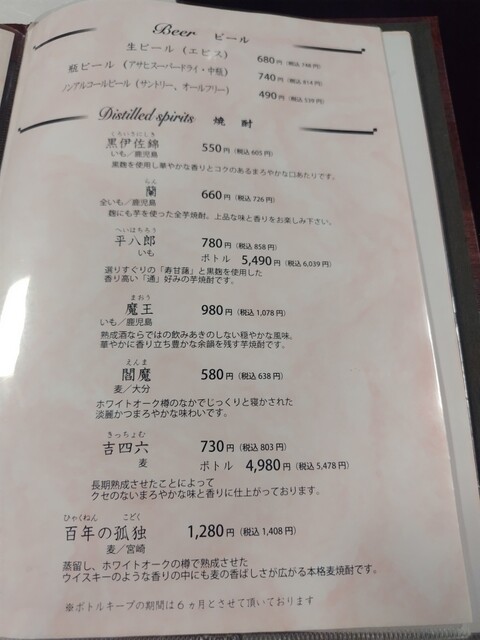 Beer ビール
生ビール（エビス） 680円（税込748円）
瓶ビール（アサヒスーパードライ・中瓶） 740円（税込814円）
ノンアルコールビール（サントリー、オールフリー） 490円（税込539円）
Distilled spirits 焼酎
くろいさにしき
黒伊佐錦 550円（税込605円）
いも／鹿児島
黒麹を使用し華やかな香りとコクのあるまろやかな口あたりです。
らん
蘭 660円（税込726円）
全いも／鹿児島
麹にも芋を使った全芋焼酎。上品な味と香りをお楽しみ下さい。
へいはちろう
平八郎 780円（税込858円）
いも ボトル 5,490円（税込6,039円）
選りすぐりの「寿甘藷」と黒麹を使用した
香り高い「通」好みの芋焼酎です。
まおう
魔王 980円（税込1,078円）
いも／鹿児島
熟成酒ならではの飲みあきのしない穏やかな風味。
華やかに香り立ち豊かな余韻を残す芋焼酎です。
えんま
閻魔 580円（税込638円）
麦／大分
ホワイトオーク樽のなかでじっくりと寝かされた
淡麗かつまろやかな味わいです。
きっちょむ
吉四六 730円（税込803円）
麦 ボトル 4,980円（税込5,478円）
長期熟成させたことによって
クセのないまろやかな味と香りに仕上がっております。
ひゃくねん こどく
百年の孤独 1,280円（税込1,408円）
麦／宮崎
蒸留し、ホワイトオークの樽で熟成させた
ウイスキーのような香りの中にも麦の香ばしさが広がる本格麦焼酎です。
※ボトルキープの期間は６ヵ月とさせて頂いております